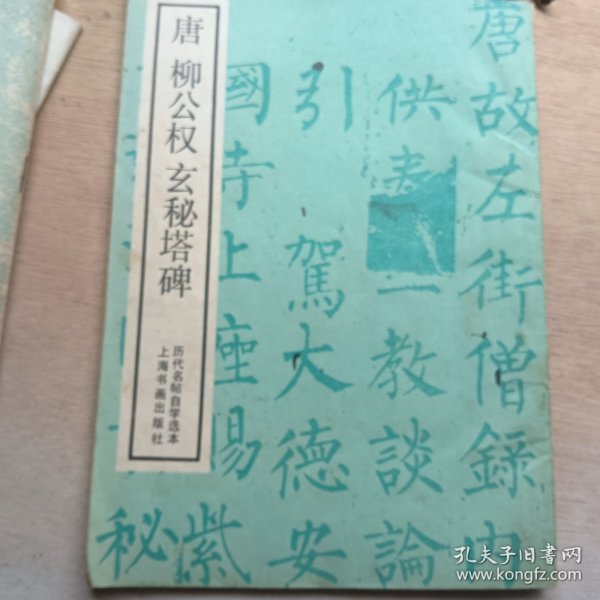 唐 柳公权 玄秘塔碑
历代名帖自学选本
上海书画出版社
唐故左街僧錄内
供奉三教談論
引駕大德安
國寺上座賜紫
秘
孔夫子旧书网
www.kongfz.com